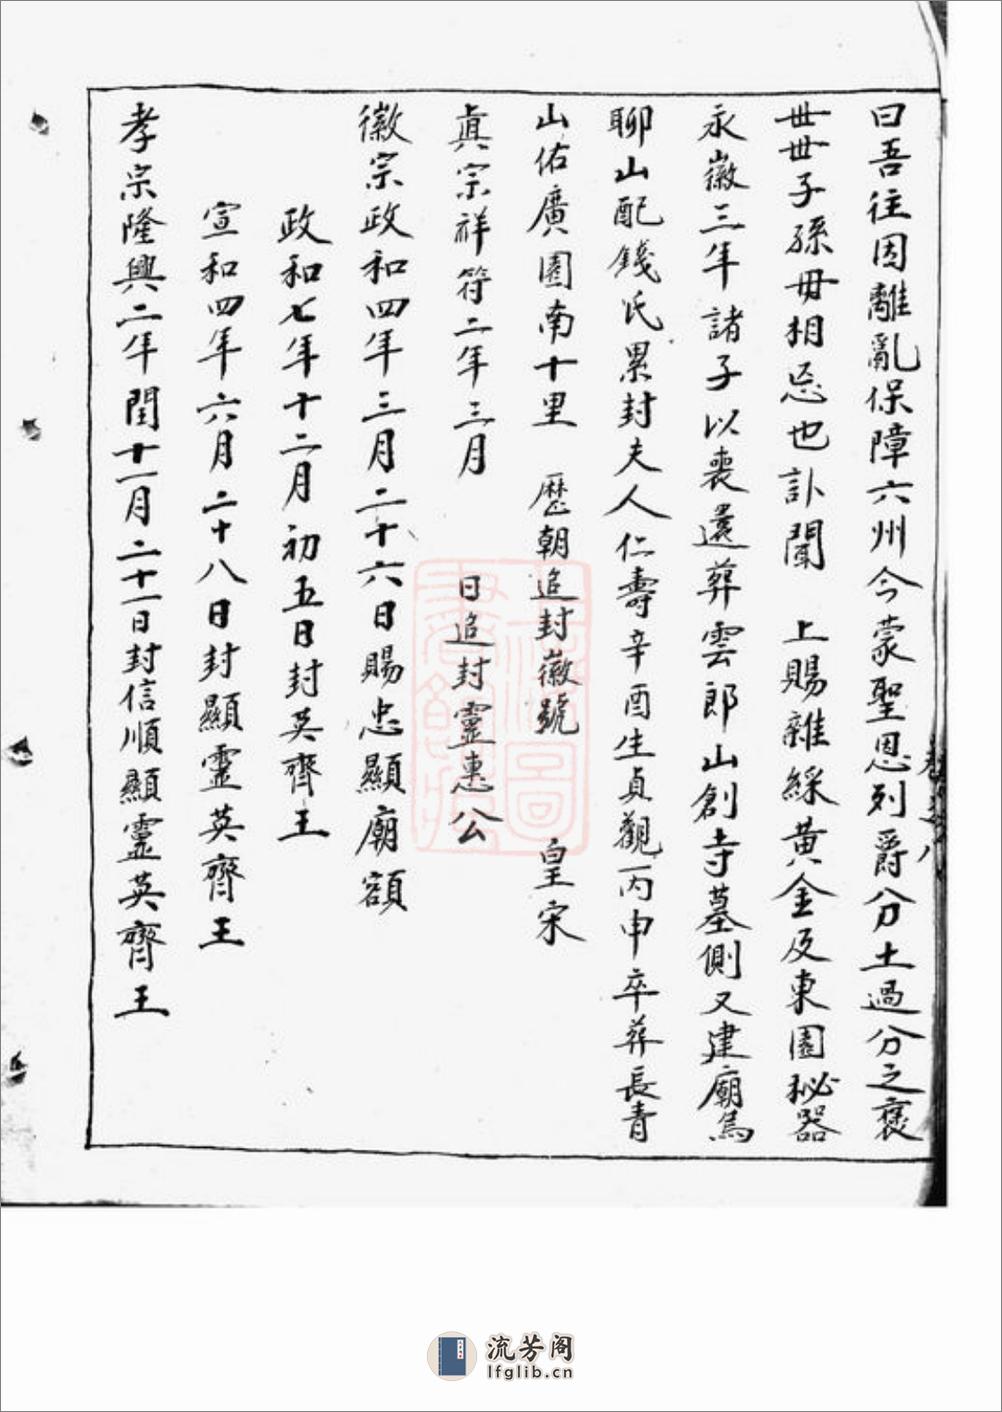 曰吾往因離亂保障六州今蒙聖恩列爵分土過分之褒
世世子孫毋相忘也訃聞　上賜雜綵黄金及東園秘器
永徽三年諸子以喪還葬雲郎山創寺墓側又建廟焉
聊山配錢氏累封夫人仁壽辛酉生貞觀丙申卒葬長青
山佑廣園南十里　歷朝追封徽號　皇宋
真宗祥符二年三月　日追封靈惠公
徽宗政和四年三月二十六日賜忠顯廟額
政和七年十二月初五日封英齊王
宣和四年六月二十八日封顯靈英齊王
孝宗隆興二年閏十一月二十一日封信順顯靈英齊王
流芳阁
lfglib.cn